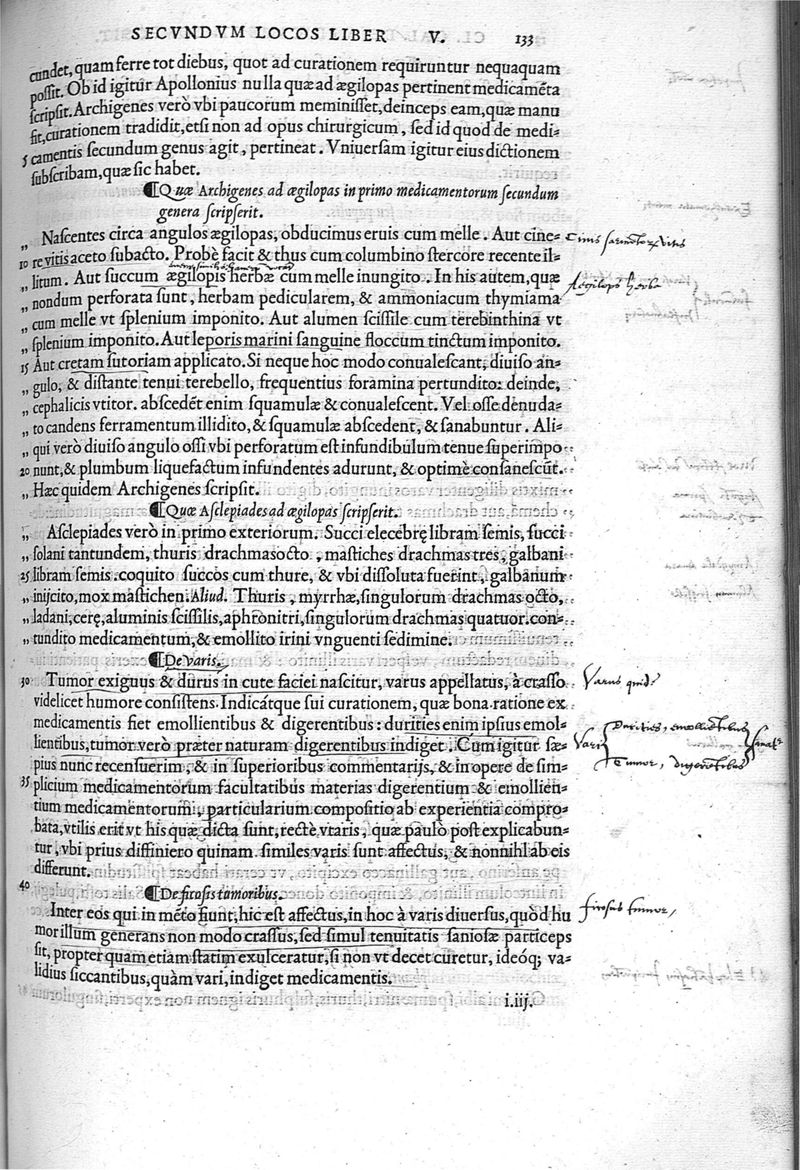 SECVNDVM LOCOS LIBER V. 133
cundet, quam ferre tot diebus, quot ad curationem requiruntur nequaquam
possit. Ob id igitur Apollonius nulla quæ ad ægilopas pertinent medicamẽta
scripsit. Archigenes verò vbi paucorum meminisset, deinceps eam, quæ manu
fit, curationem tradidit, etsi non ad opus chirurgicum, sed id quod de medi=
5 camentis secundum genus agit, pertineat. Vniuersam igitur eius dictionem
subscribam, quæ sic habet.
¶Quæ Archigenes ad ægilopas in primo medicamentorum secundum
genera scripserit.
„ Nascentes circa angulos ægilopas, obducimus eruis cum melle. Aut cine= cinis sarmentor. vitis
10 re vitis aceto subacto. Probè facit & thus cum columbino stercore recente il=
„ litum. Aut succum ægilopis herbæ cum melle inungito. In his autem, quæ Aegilops herba
„ nondum perforata sunt, herbam pedicularem, & ammoniacum thymiama
„ cum melle vt splenium imponito. Aut alumen scissile cum terebinthina vt
„ splenium imponito. Aut leporis marini sanguine floccum tinctum imponito.
15 Aut cretam sutoriam applicato. Si neque hoc modo conualescant, diuiso an=
„ gulo, & distante tenui terebello, frequentius foramina pertundito: deinde,
„ cephalicis vtitor. abscedẽt enim squamulæ & conualescent. Vel osse denuda=
„ to candens ferramentum illidito, & squamulæ abscedent, & sanabuntur. Ali=
„ qui verò diuiso angulo ossi vbi perforatum est infundibulum tenue superimpo=
20 nunt, & plumbum liquefactum infundentes adurunt, & optimè consanescũt.
„ Hæc quidem Archigenes scripsit.
¶Quæ Asclepiades ad ægilopas scripserit.
„ Asclepiades verò in primo exteriorum. Succi elecebrę libram semis, succi
„ solani tantundem, thuris drachmas octo, mastiches drachmas tres, galbani
25 libram semis. coquito succos cum thure, & vbi dissoluta fuerint, galbanum
„ inijcito, mox mastichen. Aliud. Thuris, myrrhæ, singulorum drachmas octo,
„ ladani, cerę, aluminis scissilis, aphronitri, singulorum drachmas quatuor. con=
„ tundito medicamentum, & emollito irini vnguenti sedimine.
¶De varis.
30 Tumor exiguus & durus in cute faciei nascitur, varus appellatus, à crasso Varus quid?
videlicet humore consistens. Indicátque sui curationem, quæ bona ratione ex
medicamentis fiet emollientibus & digerentibus: durities enim ipsius emol= durities, emollientibus
lientibus, tumor verò præter naturam digerentibus indiget. Cum igitur sæ= Vari
pius nunc recensuerim, & in superioribus commentarijs, & in opere de sim= Tumor, digerentibus
35 plicium medicamentorum facultatibus materias digerentium & emollien=
tium medicamentorum, particularium compositio ab experientia compro=
bata, vtilis erit vt his quæ dicta sunt, rectè vtaris, quæ paulò post explicabun=
tur, vbi prius diffiniero quinam similes varis sunt affectus, & nonnihl ab eis
differunt.
40 ¶De ficosis tumoribus.
Inter eos qui in mẽto fiunt, hic est affectus, in hoc à varis diuersus, quòd hu ficosus tumor,
mor illum generans non modo crassus, sed simul tenuitatis saniosæ particeps
sit, propter quam etiam statim exulceratur, si non vt decet curetur, ideóq; va=
lidius siccantibus, quàm vari, indiget medicamentis.
i.iij.